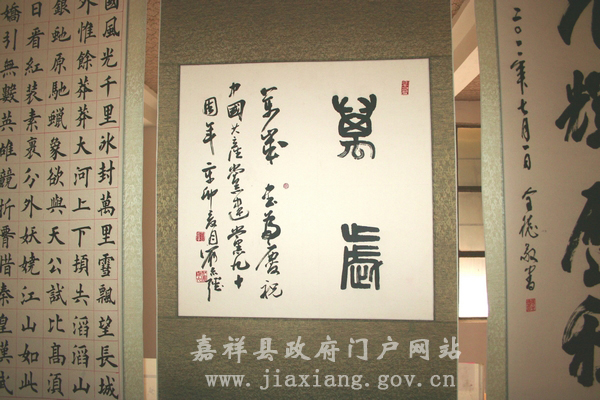 國風光千里冰封萬里雪飄望長城
外惟餘莽莽大河上下頓失滔滔山
銀虵原馳蠟象欲與天公試比高湏
日看紅裝素裹分外妖嬈江山如此
嬌引無數英雄競折腰惜秦皇漢武
萬歲
萬歲 書爲慶祝
中國共產黨建黨九十
周年 辛卯夏月
輝歷
二〇一一年七月一日
敬書
嘉祥县政府门户网站
www.jiaxiang.gov.cn